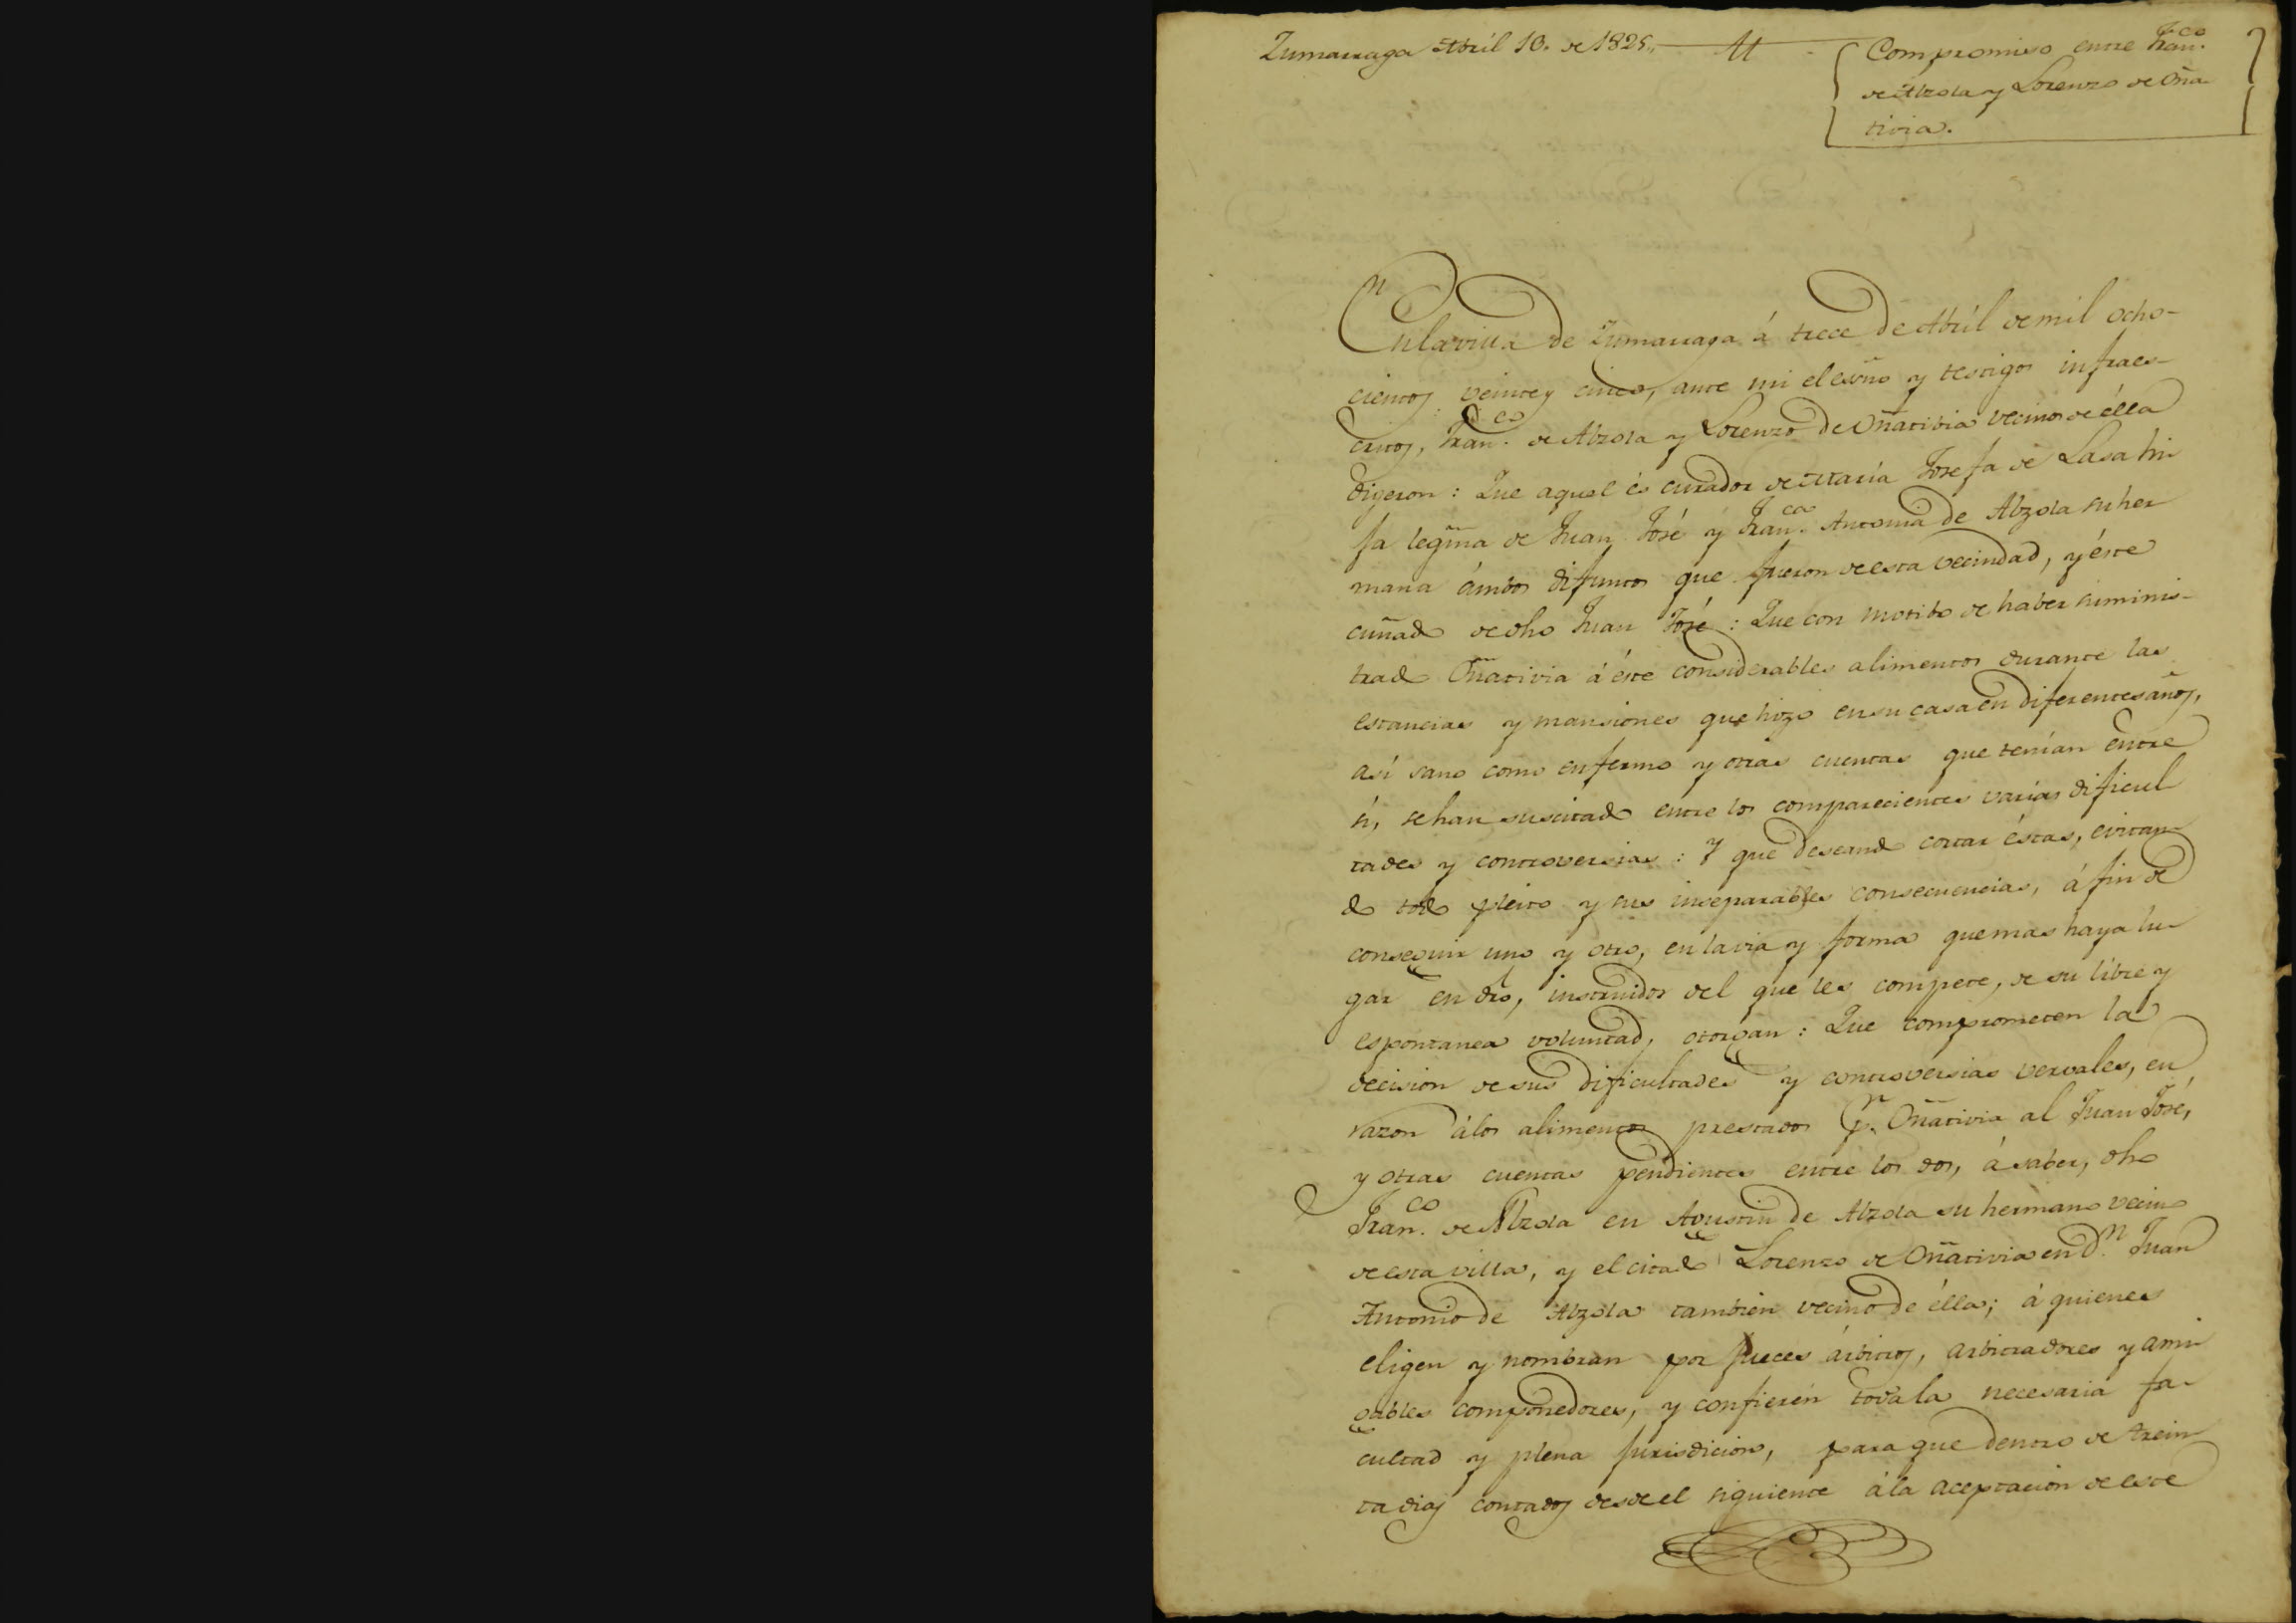 Zumarraga Abril 13. de 1825.
Compromiso entre Fran.co
de Alzola y Lorenzo de Oña
tivia.
En la villa de Zumarraga á trece de Abril de mil ocho-
cientos veinte y cinco, ante mi el esno y testigos infraes-
critos, Fran.co de Alzola y Lorenzo de Oñativia vecinos de élla
digeron: Que aquel és curador de María Josefa de Lasa hi
ja legma de Juan José y Fran.ca Antonia de Alzola su her
mana ámbos difuntos que fueron de esta vecindad, y éste
cuñado de dho Juan José: Que con motibo de haber suminis-
trado Oñativia á éste considerables alimentos durante las
estancias y mansiones que hizo en su casa en diferentes años,
así sano como enfermo y otras cuentas que tenían entre
sí, se han suscitado entre los comparecientes varias dificul
tades y controversias: Y que deseando cortar éstas, evitan
do todo pleito y sus inseparables consecuencias, á fin de
conseguir uno y otro, en la via y forma que mas haya lu
gar en dro, instruidos del que les compete, de su libre y
espontanea voluntad, otorgan: Que comprometen la
decision de sus dificultades y controversias vervales, en
razon á los alimentos prestados p.r Oñativia al Juan José,
y otras cuentas pendientes entre los dos, á saber, dho
Fran.co de Alzola en Agustin de Alzola su hermano vecino
de esta villa, y el citado Lorenzo de Oñativia en D.n Juan
Antonio de Alzola tambien vecino de élla; á quienes
eligen y nombran por Jueces árbitros, arbitradores y ami
gables componedores, y confierén toda la necesaria fa-
cultad y plena jurisdicion, para que dentro de trein
ta dias contados desde el siguiente á la aceptacion de este